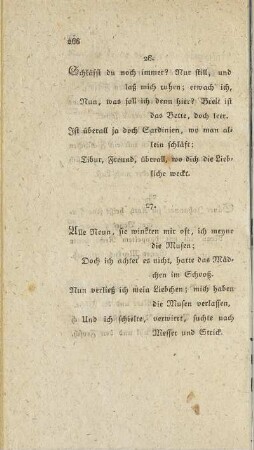 266
26.
Schläfst du noch immer? Nur still, und
laß mich ruhen; erwach ich,
Nun, was soll ich denn hier? Breit ist
das Bette, doch leer.
Ist überall ja doch Sardinien, wo man al-
lein schläft;
Tibur, Freund, überall, wo dich die Lieb-
liche weckt.
27.
Alle Neun, sie winkten mir oft, ich meyne
die Musen;
Doch ich achtet es nicht, hatte das Mäd-
chen im Schooß.
Nun verließ ich mein Liebchen; mich haben
die Musen verlassen,
Und ich schielte, verwirrt, suchte nach
Messer und Strick.